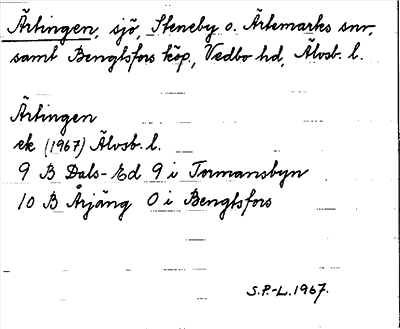 Ärtingen, sjö, Steneby o. Ärtemarks snr,
samt Bengtsfors köp., Vedbo hd, Älvsb. l.
Ärtingen
ek (1967) Älvsb. l.
9 B Dals-Ed 9 i Tormansbyn
10 B Årjäng 0 i Bengtsfors
S.P.-L. 1967.